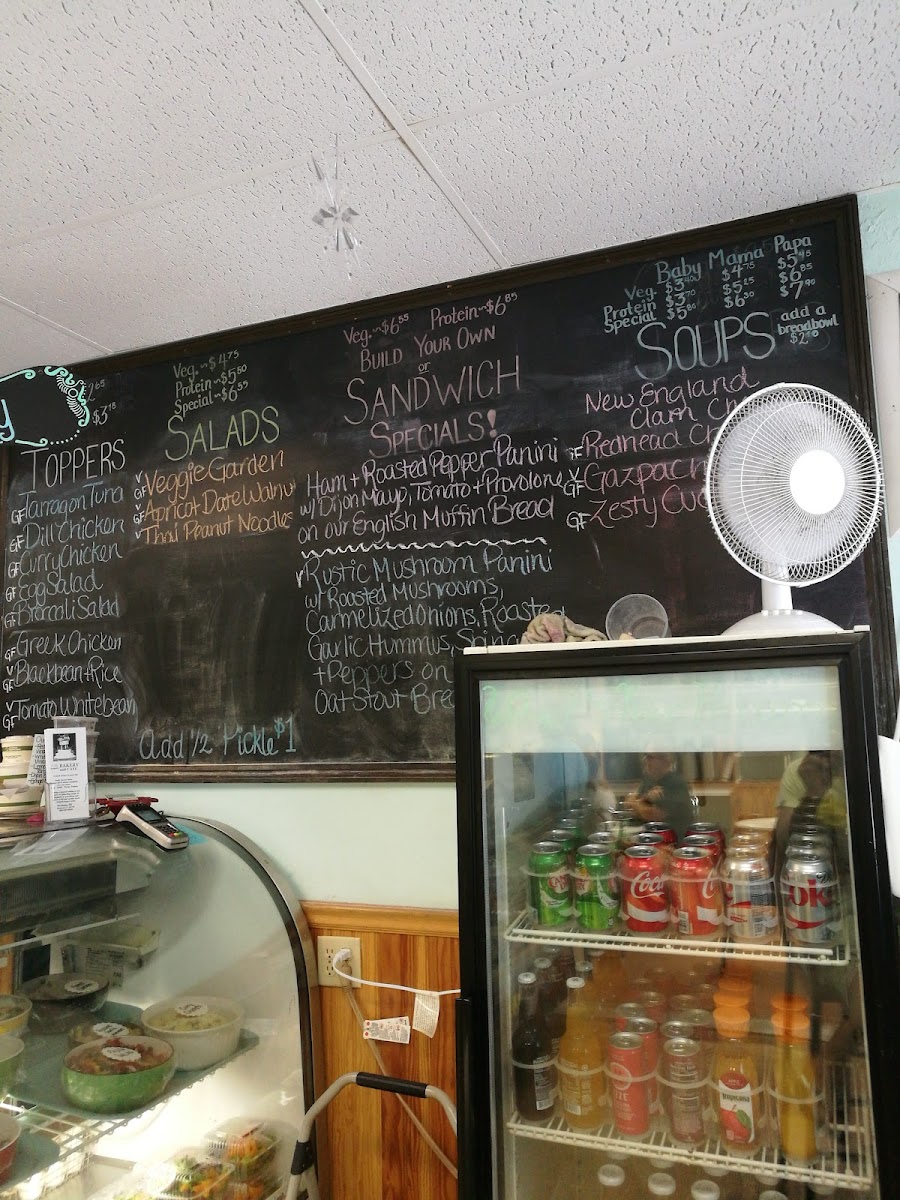 y
2.65
$3.15
TOPPERS
GF Tarragon Tuna
GF Dill Chicken
GF Curry Chicken
GF Egg Salad
GF Broccoli Salad
GF Greek Chicken
V GF Blackbean + Rice
V GF Tomato Whitebean
Veg. ~ $4.75
Protein ~ $5.50
Special ~ $6.55
SALADS
V GF Veggie Garden
V GF Apricot Date Walnu
V Thai Peanut Noodles
Add 1/2 Pickle $1
Veg. ~ $6.55 Protein ~ $6.85
BUILD YOUR OWN
or
SANDWICH
SPECIALS!
Ham + Roasted Pepper Panini
w/ Dijon Mayo, Tomato + Provolone
on our English Muffin Bread
V Rustic Mushroom Panini
w/ Roasted Mushrooms,
Carmelized Onions, Roasted
Garlic Hummus, Spina
+ Peppers on
Oat Stout Bre
Baby Mama Papa
Veg. $3.40 $4.75 $5.45
Protein $3.70 $5.15 $6.85
Special $5.80 $6.30 $7.90
SOUPS
add a
breadbowl
New England
Clam Ch
GF Redhead Ch
V GF Gazpach
GF Zesty Cu
BAKERY
Coca
oke
Tropicana